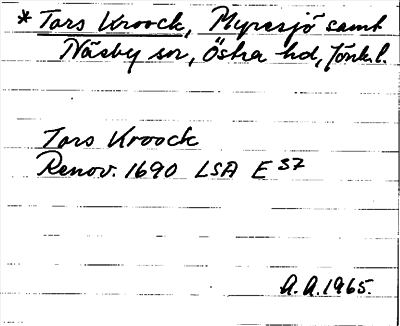 * Tors Kroock, Myresjö samt
Näsby sn, Östra hd, Jönk.l.
Tors Kroock
Renov. 1690 LSA E 37
A.A. 1965.